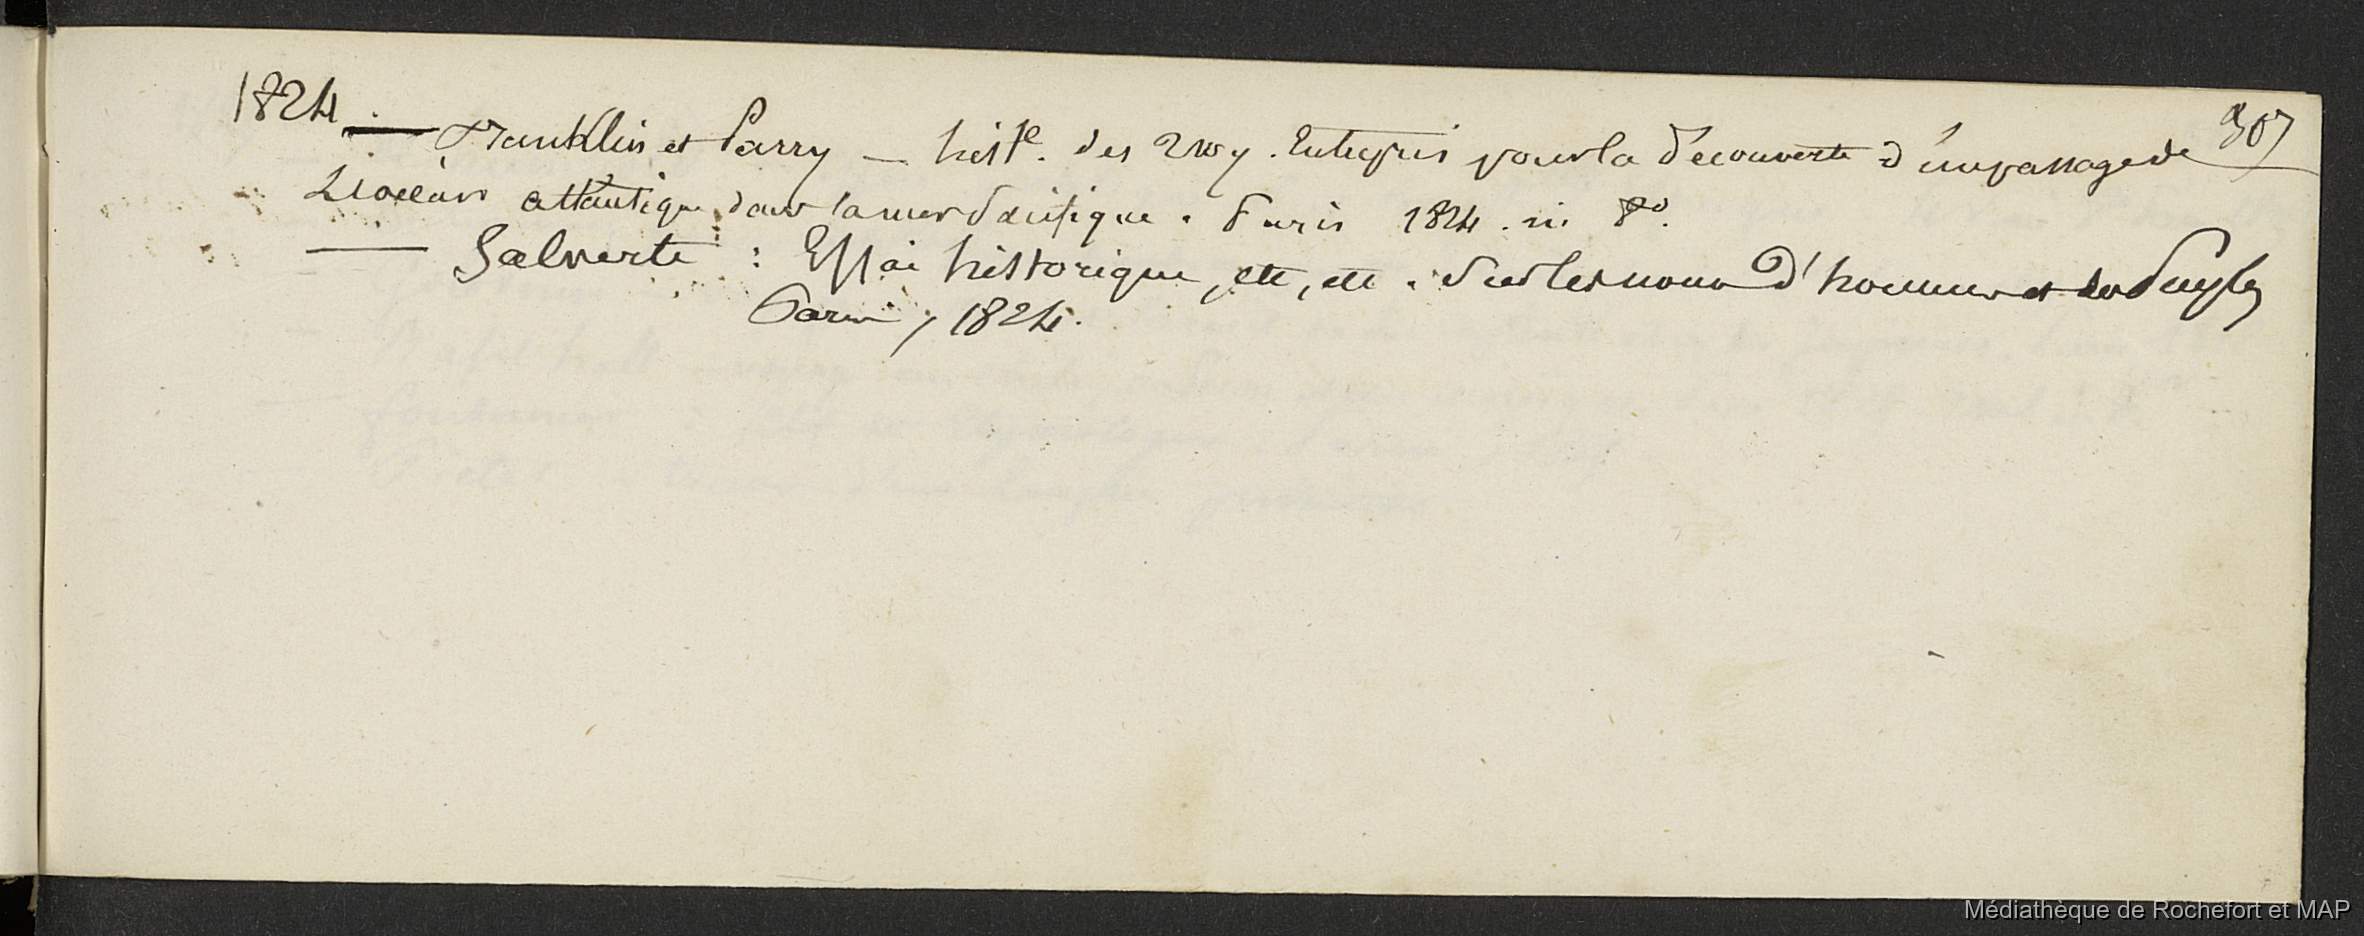 307
1824 — Franklin et Parry — hist.e des 2 voy. Entrepris pour la découverte d'un passage de
L'océan atlantique dans la mer Pacifique. Paris 1824. in 8º.
— Salverte : Essai historique, etc, etc. Sur les noms d'hommes et de Peuples
Paris, 1824.
Médiathèque de Rochefort et MAP